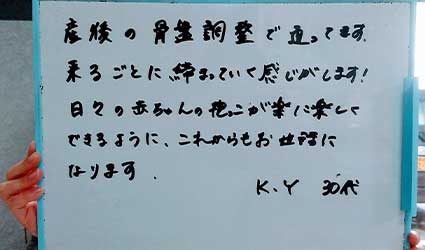 産後の骨盤調整で通ってます。
来るごとに締まっていく感じがします!
日々の赤ちゃんの抱っこが楽に楽しく
できるように、これからもお世話に
なります.
K.Y 30代